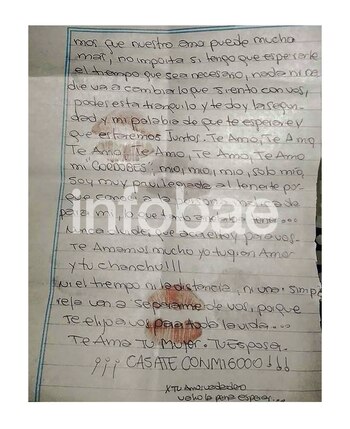 mos que nuestro amo puede mucha
mas, no importa si tengo que esperarte
el tiempo que sea necesario, nada ni na
die va a cambiar lo que siento con vos,
podes esta tranquilo y te doy la seguri
dad y mi palabra de que te esperare y
que estaremos juntos. Te Amo, Te Amo
Te Amo, Te Amo, Te Amo, Te Amo
mi "CORDOBES" mio, mio, mio, solo mio,
Soy muy privilegiada al tenerte por
que
para mi lo que
infobae
Nunca olvides de
Te Amamos mucho yo tu gran Amor
y tu chanchu!!!
Ni el tiempo ni la distancia, ni una simple
reja van a separarme de vos, porque
Te elijo a vos para toda la vida...
Te Ama Tu Mujer. Tu Esposa.
¡¡¡ CASATE CONMIGOOO!!!
x Tu Amor verdadero
valio la pena esperar...